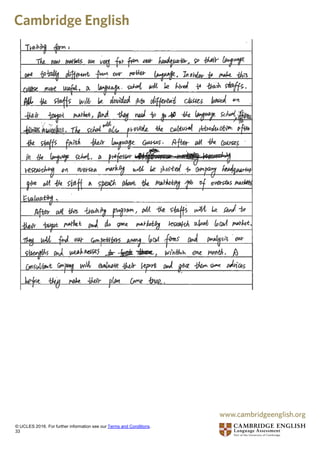 Cambridge English
Training form:
The new markets are very far from our headquarter, so their language
are totally different from our mother language. In order to make this
course more useful, a language school will be hired to train staffs.
All the staffs will be devided into different classes based on
their target market, And they need to go to the language school
The school will also provide the cultural introduction after
the staffs finish their language courses. After all the courses
in the language school, a professor
researching on oversea marketing will be invited to company headquarters
give all the staff a speech about the marketing job of overseas market
Evaluating.
After all this training program, all the staffs will be send to
their target market and do some marketing research about local market.
They will find our competitors among local firms and analysis our
strengths and weaknesses, winthin one month. A
Consultant company will evaluate their report and give them some advices
before they make their plan come true.
www.cambridgeenglish.org
© UCLES 2016. For further information see our Terms and Conditions.
33
CAMBRIDGE ENGLISH
Language Assessment
Part of the University of Cambridge